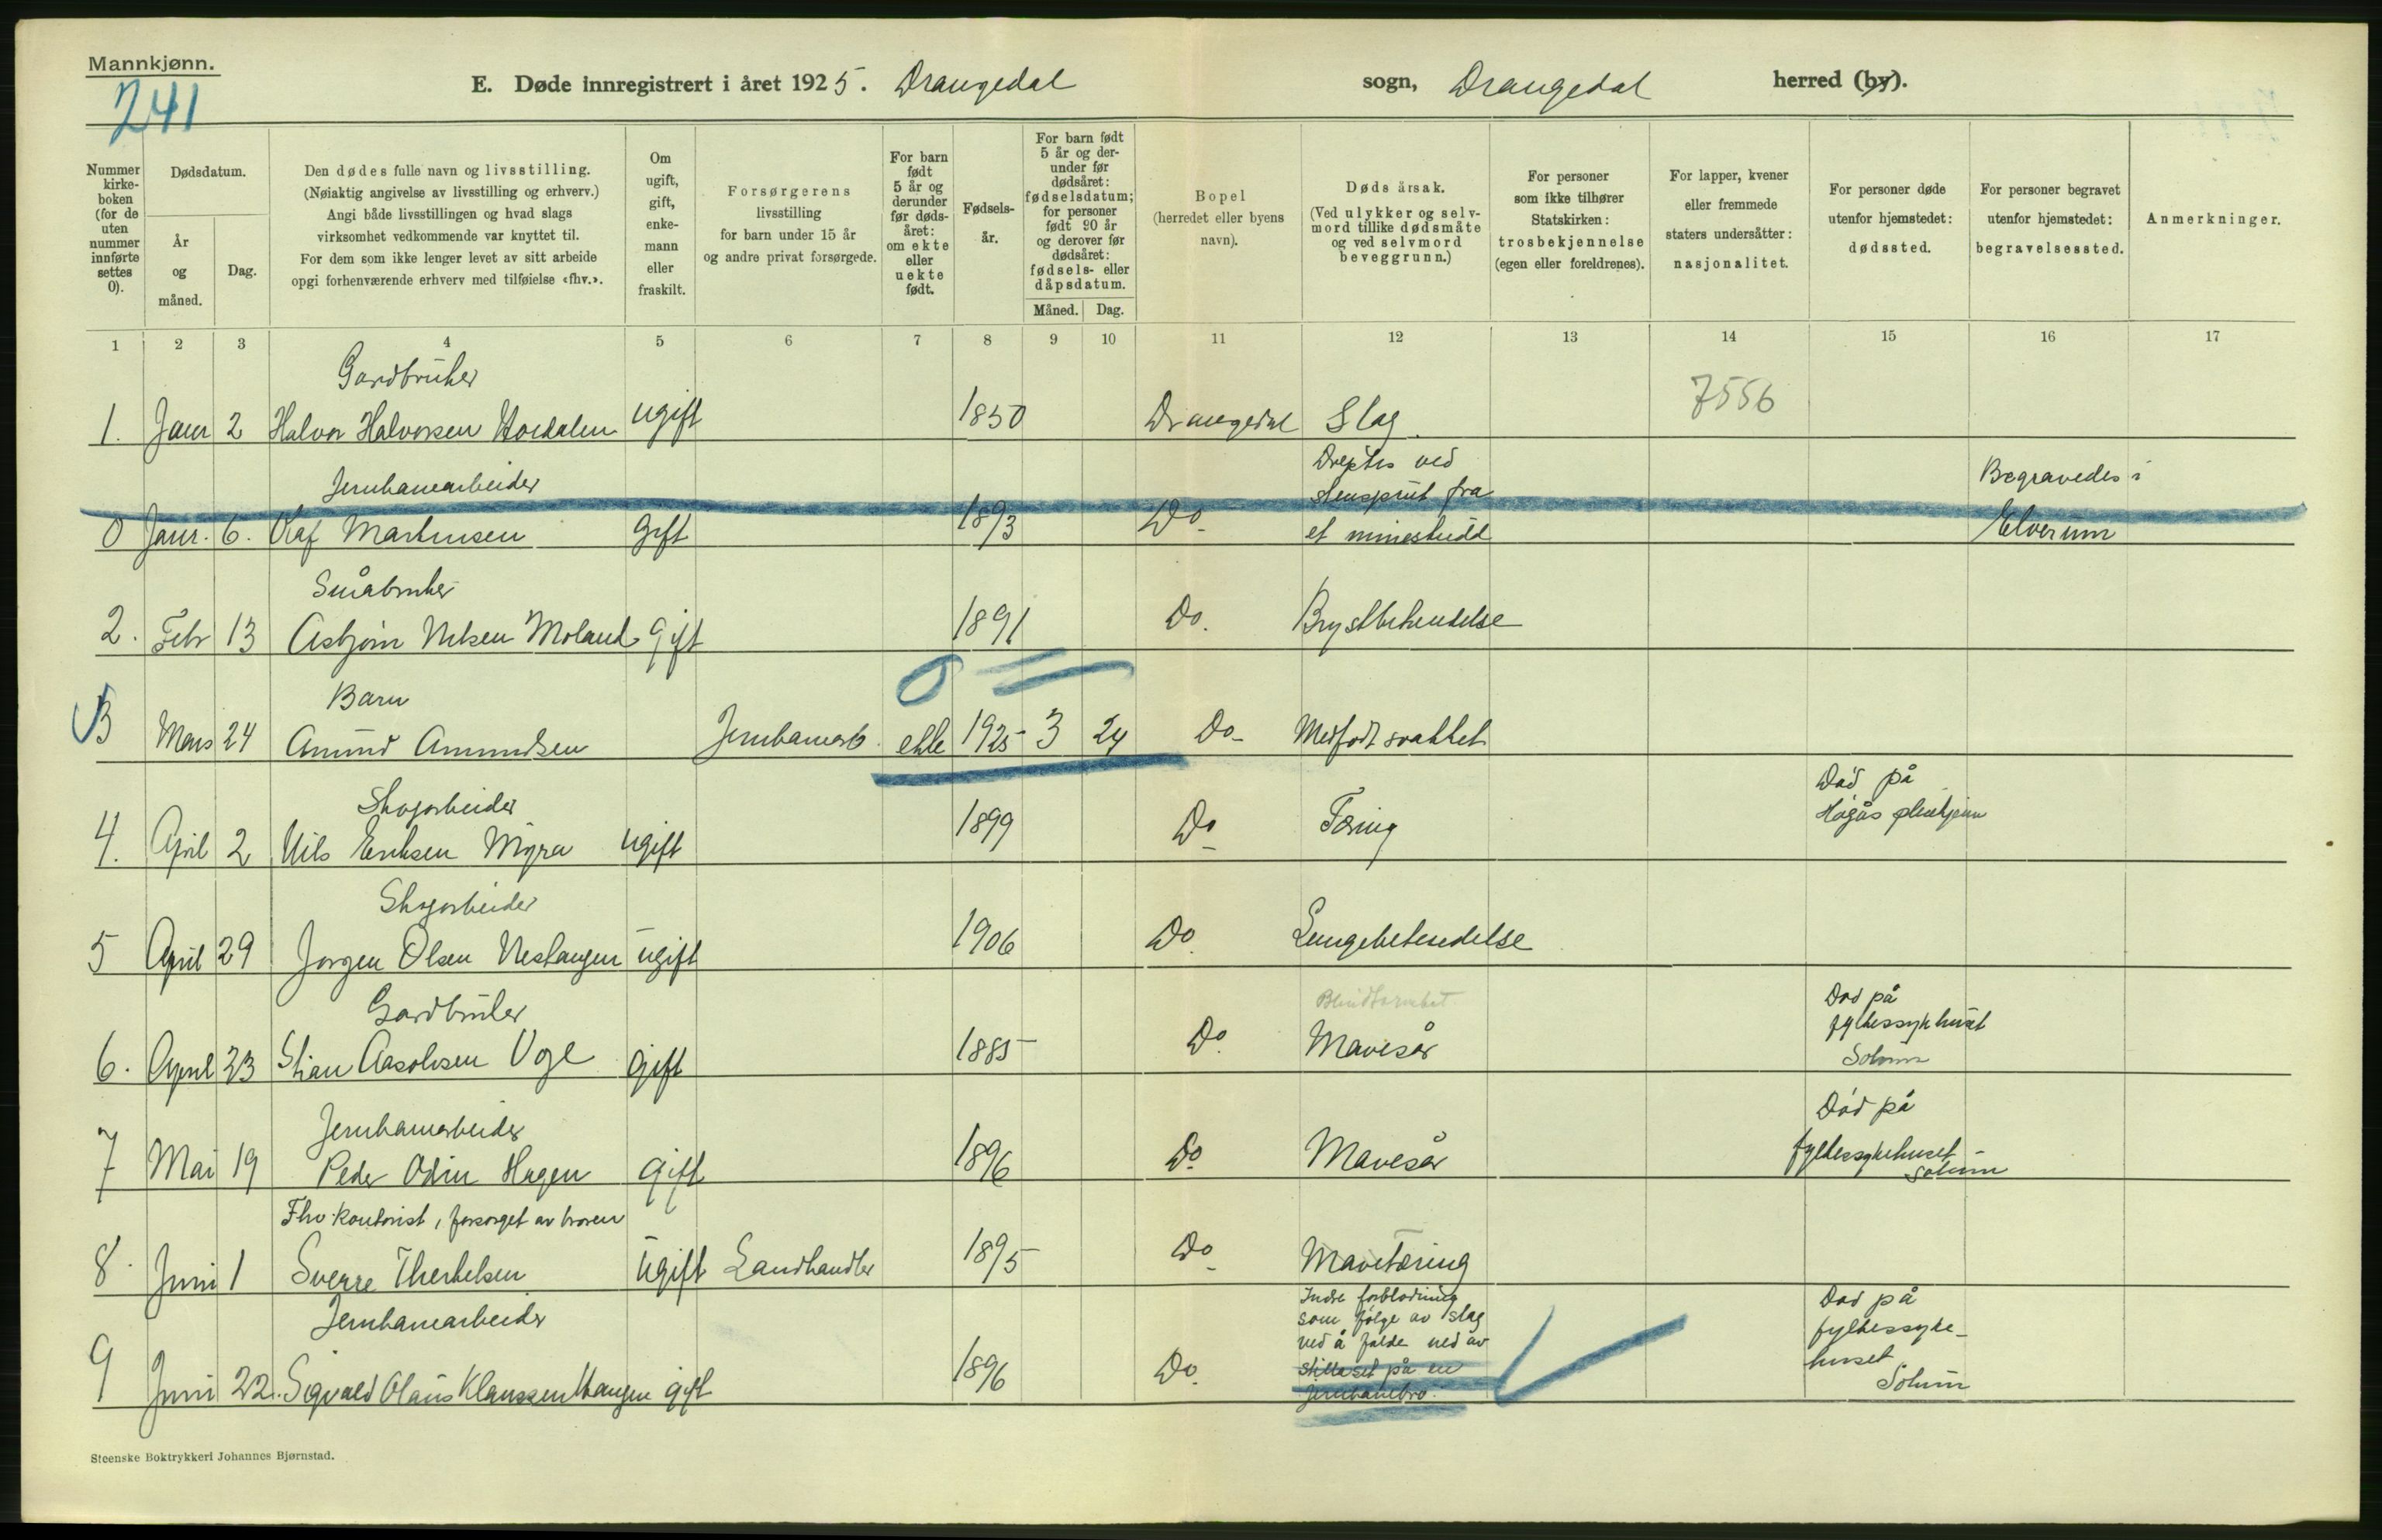 Mannkjønn.
241
E. Døde innregistrert i året 1925. Drangedal sogn, Drangedal herred (by).
Nummer kirke- boken (for de uten nummer innførte settes 0).
Dødsdatum.
År og måned.
Dag.
Den dødes fulle navn og livsstilling.
(Nøiaktig angivelse av livsstilling og erhverv.)
Angi både livsstillingen og hvad slags
virksomhet vedkommende var knyttet til.
For dem som ikke lenger levet av sitt arbeide
opgi forhenværende erhverv med tilføielse «fhv.».
Om ugift, gift, enke- mann eller fraskilt.
Forsørgerens
livsstilling
for barn under 15 år
og andre privat forsørgede.
For barn født 5 år og derunder før døds- året: om ekte eller uekte født.
Fødsels- år.
For barn født 5 år og der- under før dødsåret: fødselsdatum; for personer født 90 år og derover før dødsåret: fødsels- eller dåpsdatum.
Måned. Dag.
Bopel
(herredet eller byens
navn).
Dødsårsak.
(Ved ulykker og selv-
mord tillike dødsmåte
og ved selvmord
beveggrunn.)
For personer
som ikke tilhører
Statskirken:
trosbekjennelse
(egen eller foreldrenes).
For lapper, kvener
eller fremmede
staters undersåtter:
nasjonalitet.
For personer døde
utenfor hjemstedet:
dødssted.
For personer begravet
utenfor hjemstedet:
begravelsessted.
Anmerkninger.
1 2 3 4 5 6 7 8 9 10 11 12 13 14 15 16 17
Gardbruker
1. Janr 2 Halvor Halvorsen ugift 1850 Drangedal Slag. 7556
Jernbanearbeider
0 Janr. 6. Olaf Martinsen Gift 1893 Do. Dreptes ved
stensprut fra
et mineskudd
Begravedes i
Elverum
Småbruker
2. Febr 13 Asbjørn Nilsen Moland Gift 1891 Do. Brystbetendelse
Barn
3 Mars 24 Amund Amundsen Jernbanearb. ekte 1925 3 24 Do Medfødt svakhet
Skogarbeider
4. April 2 Nils Eriksen Myra ugift 1899 Do Tæring
Død på
Høgås pleiehjem
Skogarbeider
5 April 29 Jørgen Olsen Nestangen ugift 1906 Do. Lungebetendelse
Gardbruker
6. April 23 Stian Aasolvsen gift 1885 Do.
Blindtarmbet
Mavesår
Død på
fylkessykehuset
Solum
Jernbanearbeider
7 Mai 19 Peder Odin Hagen gift 1896 Do Mavesår
Død på
fylkessykehuset
Solum
Fhv. kontorist, forsørget av broren
8. Juni 1 Sverre Therkelsen ugift Landhandler 1895 Do Mavetæring
Jernbanearbeider
9 Juni 22. Sigvald Olaus Klaussen gift 1896 Do.
Indre forblødning
som følge av slag
ved å falde ned av
stillaset på en
jernbanebro.
Død på
fylkessyke-
huset
Solum
Steenske Boktrykkeri Johannes Bjørnstad.